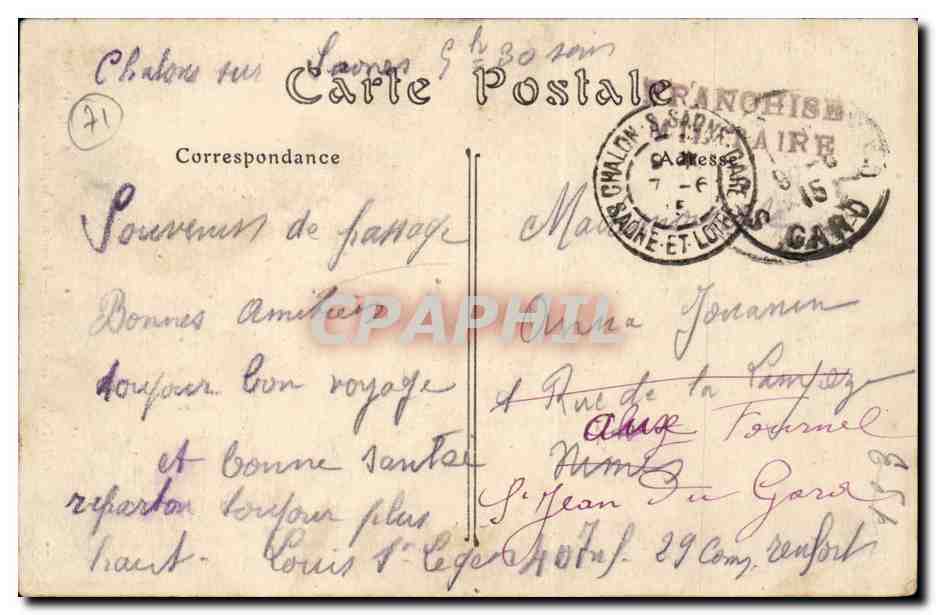 Chalons sur Saones 9h 30 soir
Carte Postale
FRANCHISE
71
CHALON-S-SAONE GARE
SAONE-ET-LOIRE
7 -6
15
15
GARD
Correspondance
Adresse
Souvenirs de passage
Bonnes amitiés
toujour bon voyage
et bonne santée
reparton toujour plus
haut - Louis St Leger 40 Inf. 29 Comp. renfort
Anna Jouanen
1 Rue de la
aux Fournel
Nimes
St Jean du Gard
153
CPAPHIL